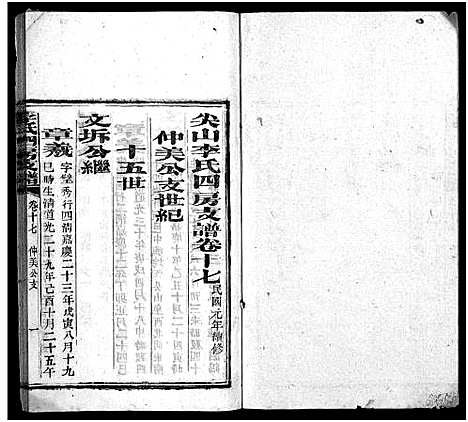 尖山李氏四房支譜卷十七 民國元年續修
仲美公支世紀
十五世
文圻公繼
章羲 字堂秀行四清嘉慶二十三年戊寅八月十九
巳時生清道光二十九年己酉十月二十五午
李氏四房支譜 卷十七 仲美公支 一